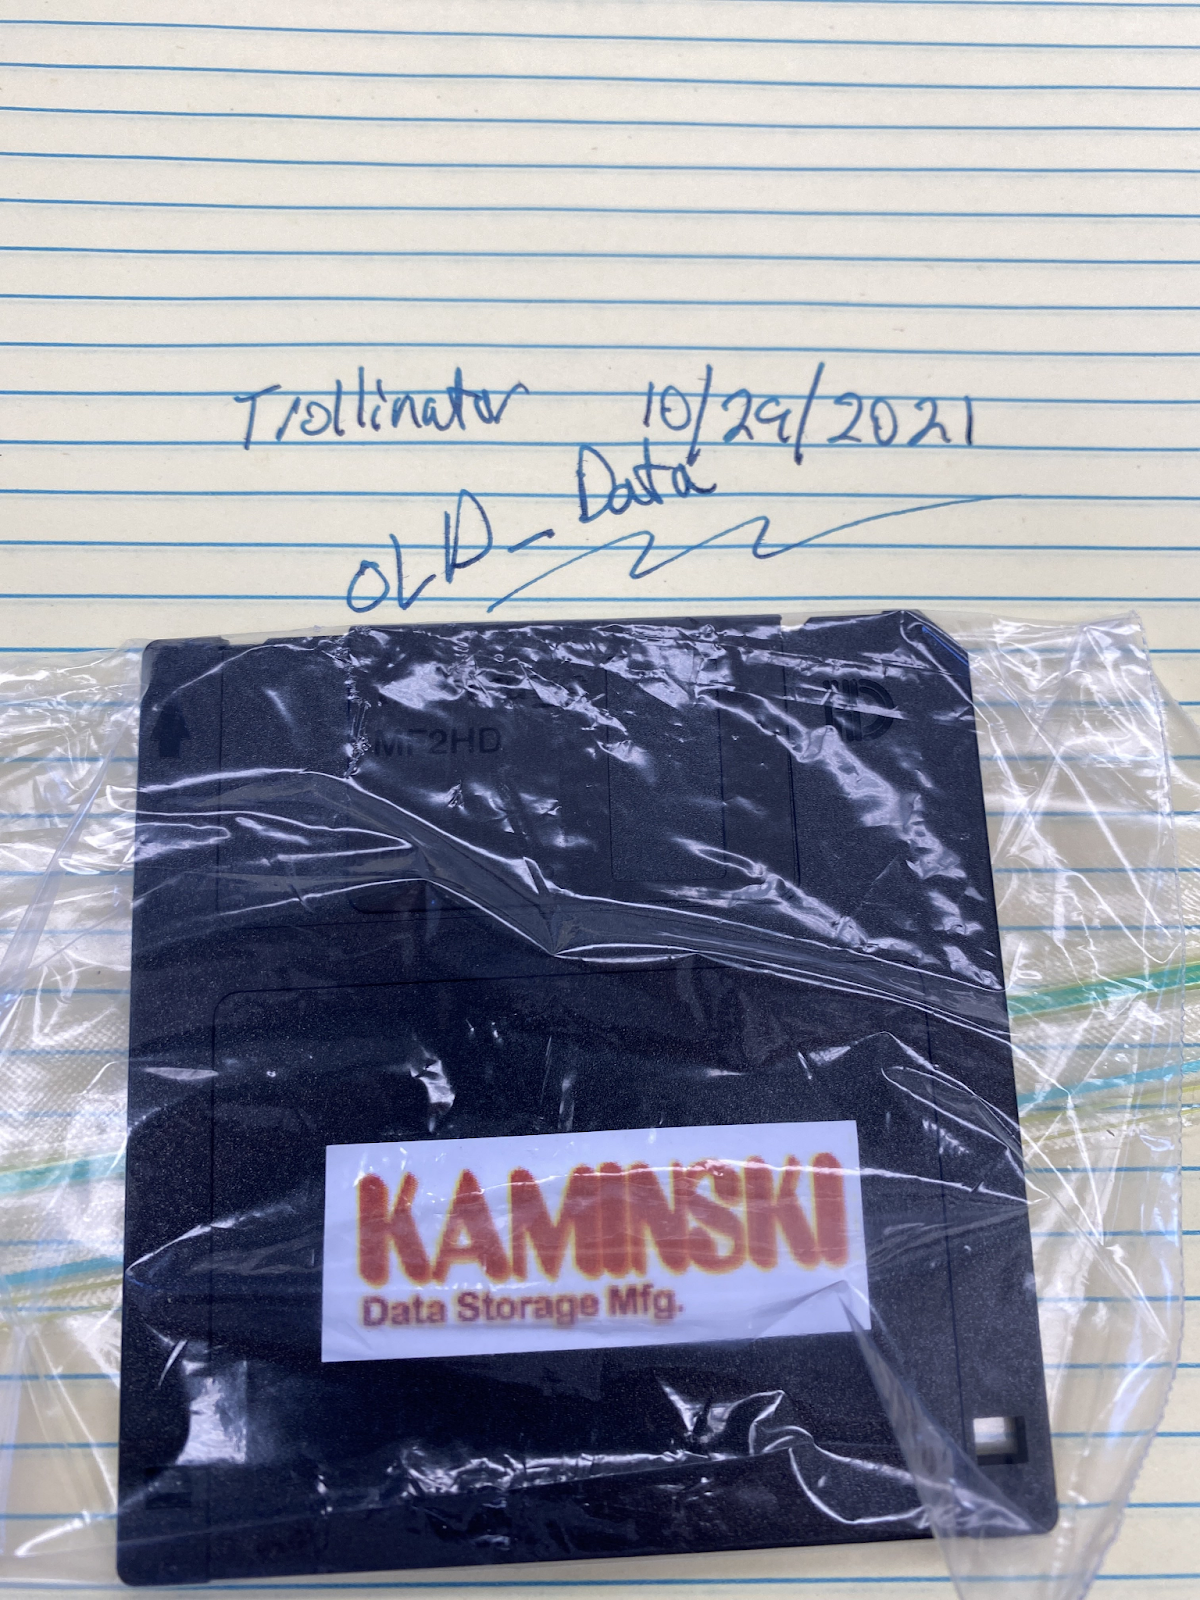 Trollinator 10/29/2021
OLD_Data
MF2HD
HD
KAMINSKI
Data Storage Mfg.